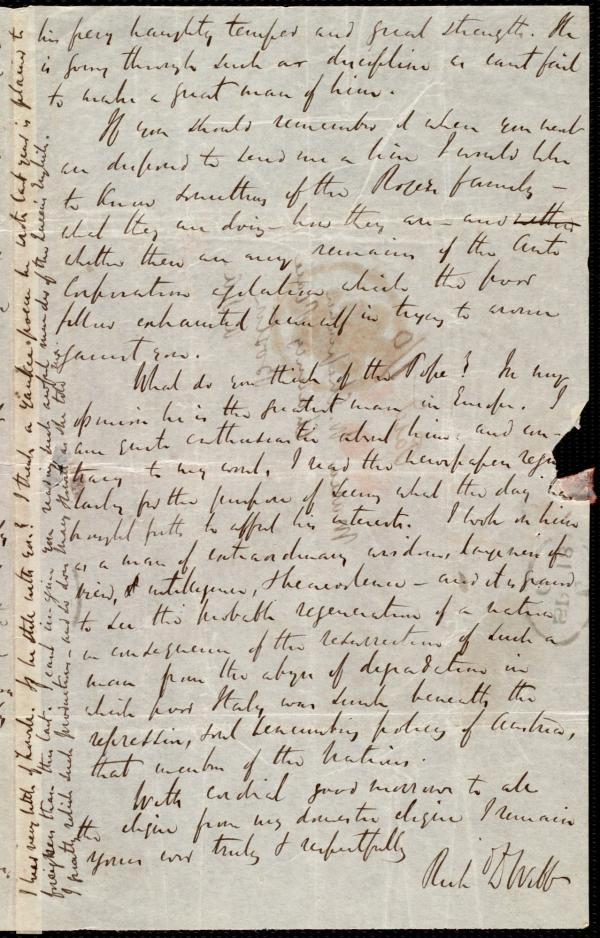 his fiery haughty temper and great strength. He
is going through such a discipline as can't fail
to make a great man of him.
If you should remember it when you next
are disposed to send me a line I would like
to know something of the Rogers family –
what they are doing – how they are – and whether
whether there are any remains of the Anti
Corporation agitation which the poor
fellow exhausted himself in trying to arouse
against you.
What do you think of the Pope? In my
opinion he is the greatest man in Europe. I
am quite enthusiastic about him, and con-
trary to my wont, I read the newspapers regu
larly for the purpose of seeing what the day has
brought forth to affect his interests. I look on him
as a man of extraordinary wisdom, largeness of
view, & intelligence, & benevolence – and it is grand
to see the probable regeneration of a nation
in consequence of the resurrection of such a
man from the abyss of degradation in
which poor Italy was sunk beneath the
repressing, soul benumbing policy of Austria,
that member of the Nations.
With cordial good morrows to all
the from my domestic I remain
yours ever truly & respectfully
Rich D Webb
I hear very little of Is he still with you? I think a Yankee poem he wrote last year is
foreigners than this last. I can't imagine your making such awful murder of the Queen's English.
I which such productions – and so does Mary